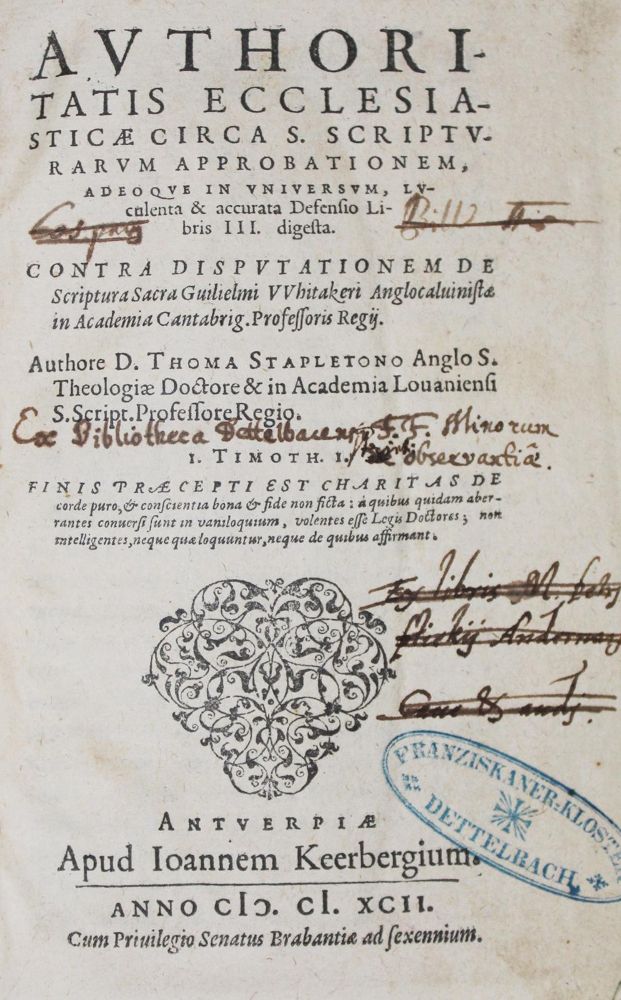 AVTHORI-
TATIS ECCLESIA-
STICÆ CIRCA S. SCRIPTV-
RARVM APPROBATIONEM,
ADEOQVE IN VNIVERSVM, LV-
culenta & accurata Defensio Li-
bris III. digesta.
CONTRA DISPVTATIONEM DE
Scriptura Sacra Guilielmi VVhitakeri Anglocaluinistæ
in Academia Cantabrig. Professoris Regij.
Authore D. THOMA STAPLETONO Anglo S.
Theologiæ Doctore & in Academia Louaniensi
S. Script. Professore Regio.
Ex Bibliotheca Dettelbacensi F.F. Minorum
I. TIMOTH. I.
de observantiâ.
FINIS PRÆCEPTI EST CHARITAS DE
corde puro, & conscientia bona & fide non ficta: à quibus quidam aber-
rantes conuersi sunt in vaniloquium, volentes esse Legis Doctores; non
intelligentes, neque quæ loquuntur, neque de quibus affirmant.
Ex libris M.
ANTVERPIÆ
Apud Ioannem Keerbergium.
ANNO CIↃ. CI. XCII.
Cum Priuilegio Senatus Brabantiæ ad sexennium.
FRANZISKANER-KLOSTER
DETTELBACH.